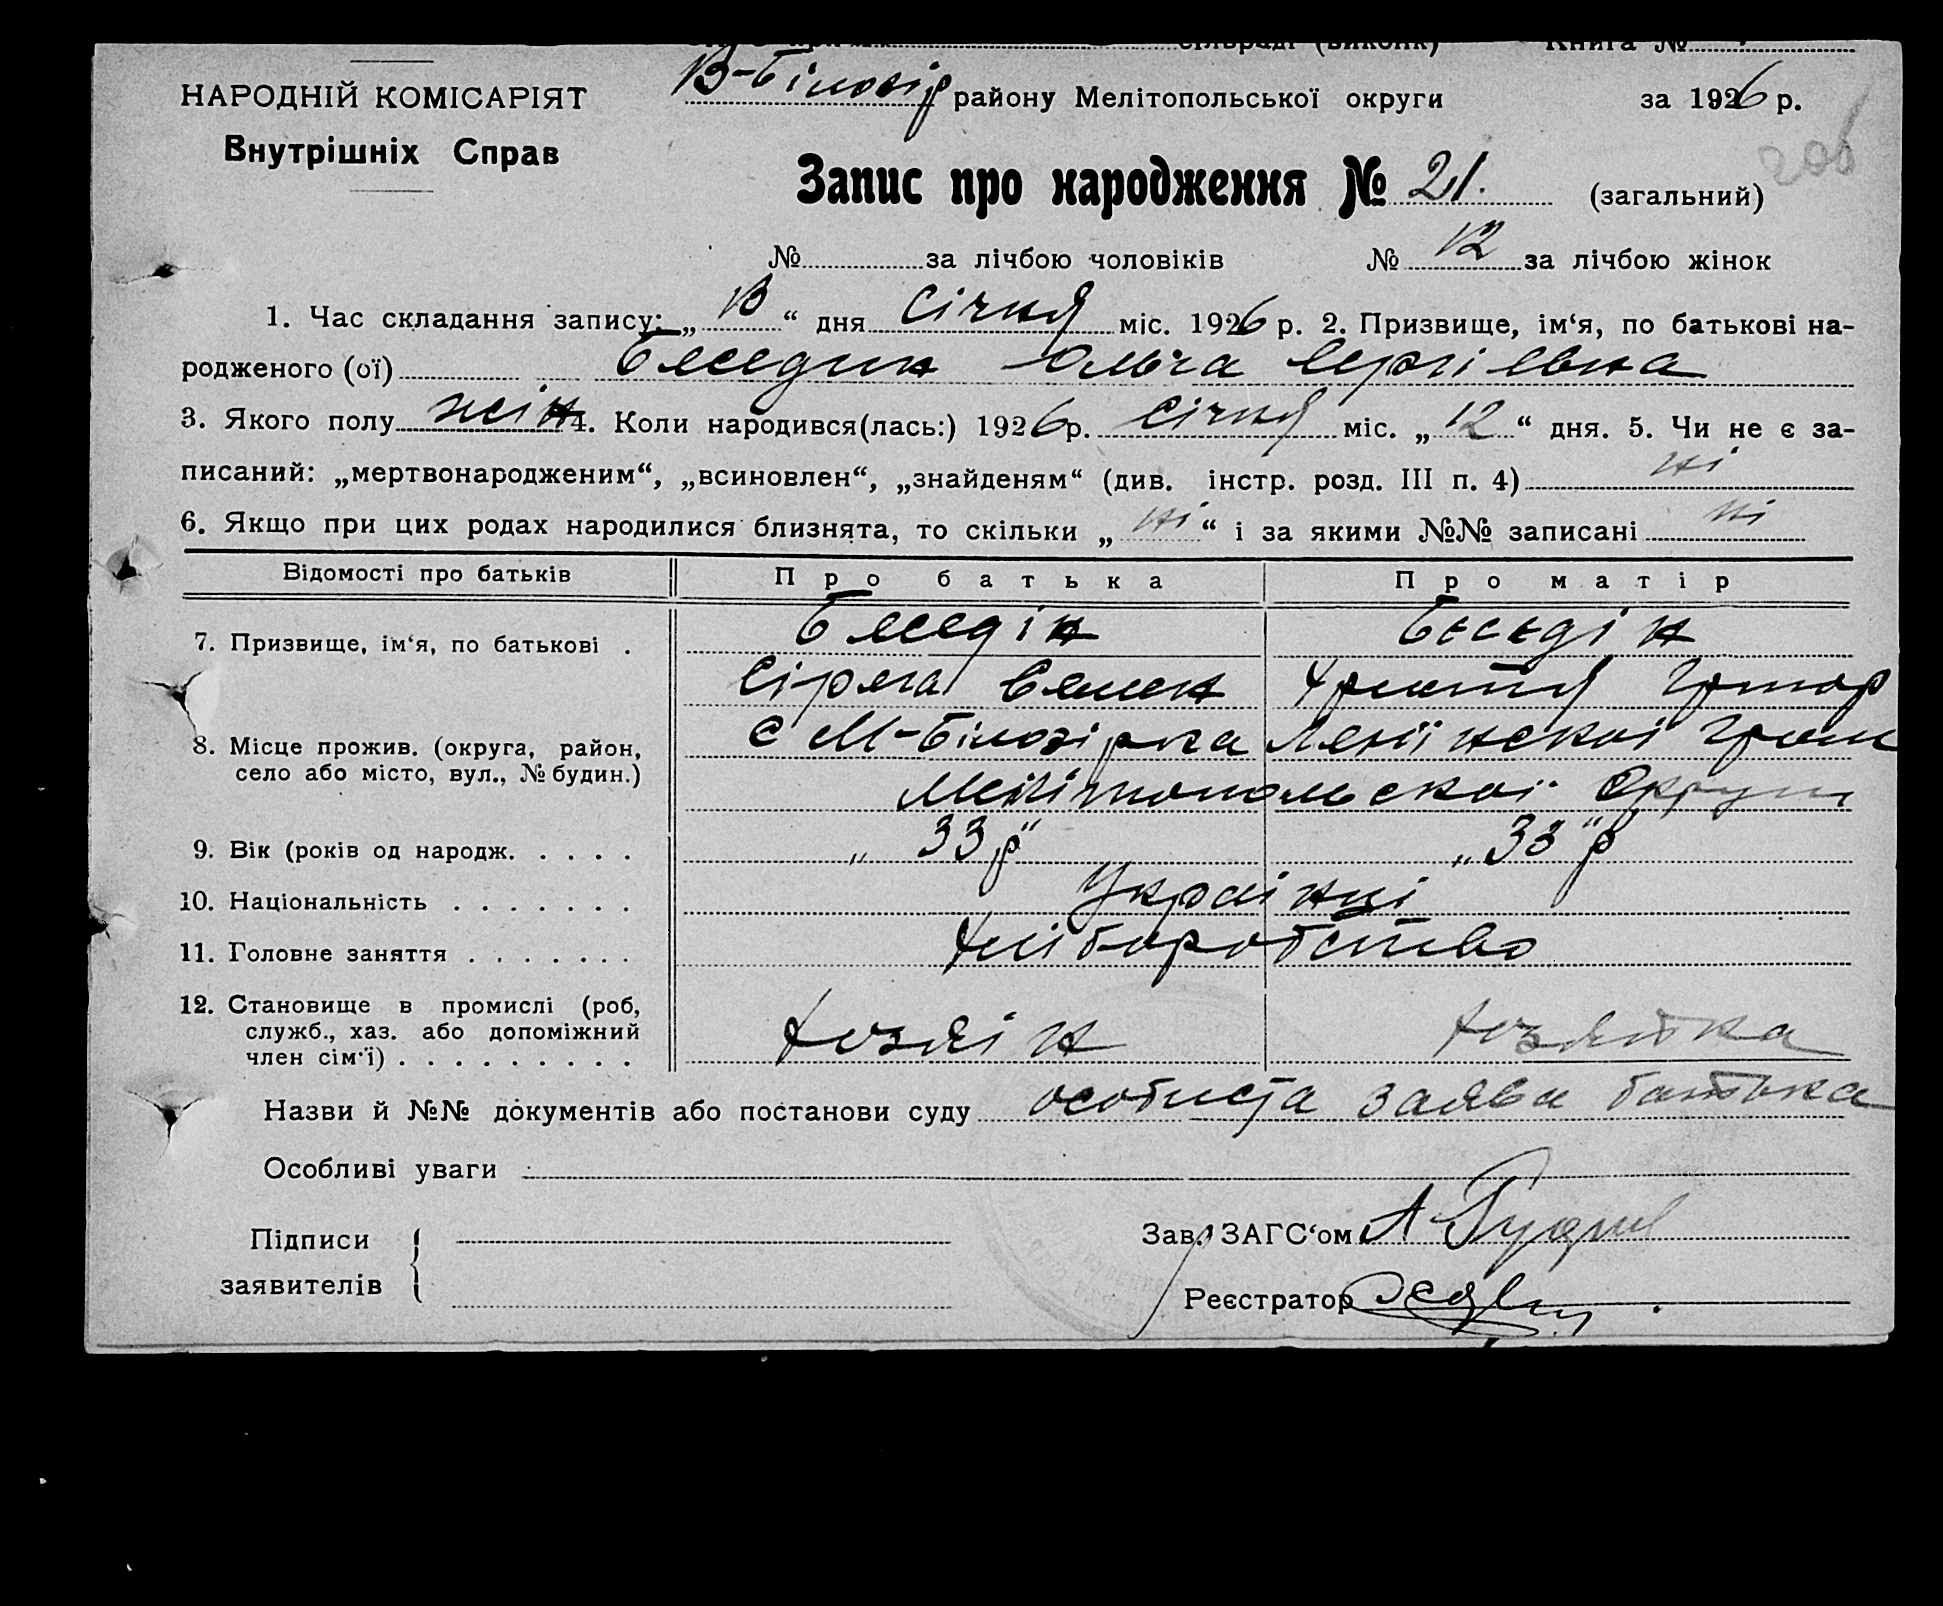 сільраді (виконк) Книга №
НАРОДНІЙ КОМІСАРІЯТ
Внутрішніх Справ
В-Білозір району Мелітопольської округи за 1926 р.
206
Запис про народження № 21. (загальний)
№ за лічбою чоловіків № 12 за лічбою жінок
1. Час складання запису: „ “ дня Січня міс. 1926 р. 2. Призвище, ім‘я, по батькові на-
родженого (ої) Беседин Ольга Сергіевна
3. Якого полу жін 4. Коли народився(лась:) 1926 р. Січня міс. „ 12 “ дня. 5. Чи не є за-
писаний: „мертвонародженим“, „всиновлен“, „знайденям“ (див. інстр. розд. III п. 4) ні
6. Якщо при цих родах народилися близнята, то скільки „ ні “ і за якими №№ записані ні
Відомості про батьків Про батька Про матір
7. Призвище, ім‘я, по батькові . Беседін Беседін
Сірега Семен Христя Григор
8. Місце прожив. (округа, район, село або місто, вул., № будин.) с М-Білозірка
Мелітопольскої Округи
9. Вік (років од народж. . . . . „ 33 р“ „ 33 “ р
10. Національність . . . . . . . Українці
11. Головне заняття . . . . . . . Хліборобство
12. Становище в промислі (роб,
служб., хаз. або допоміжний
член сім‘ї) . . . . . . . . . Хозяін Хозяйка
Назви й №№ документів або постанови суду особиста заява батька
Особливі уваги
Підписи
заявителів
Зав. ЗАГС‘ом
Реєстратор